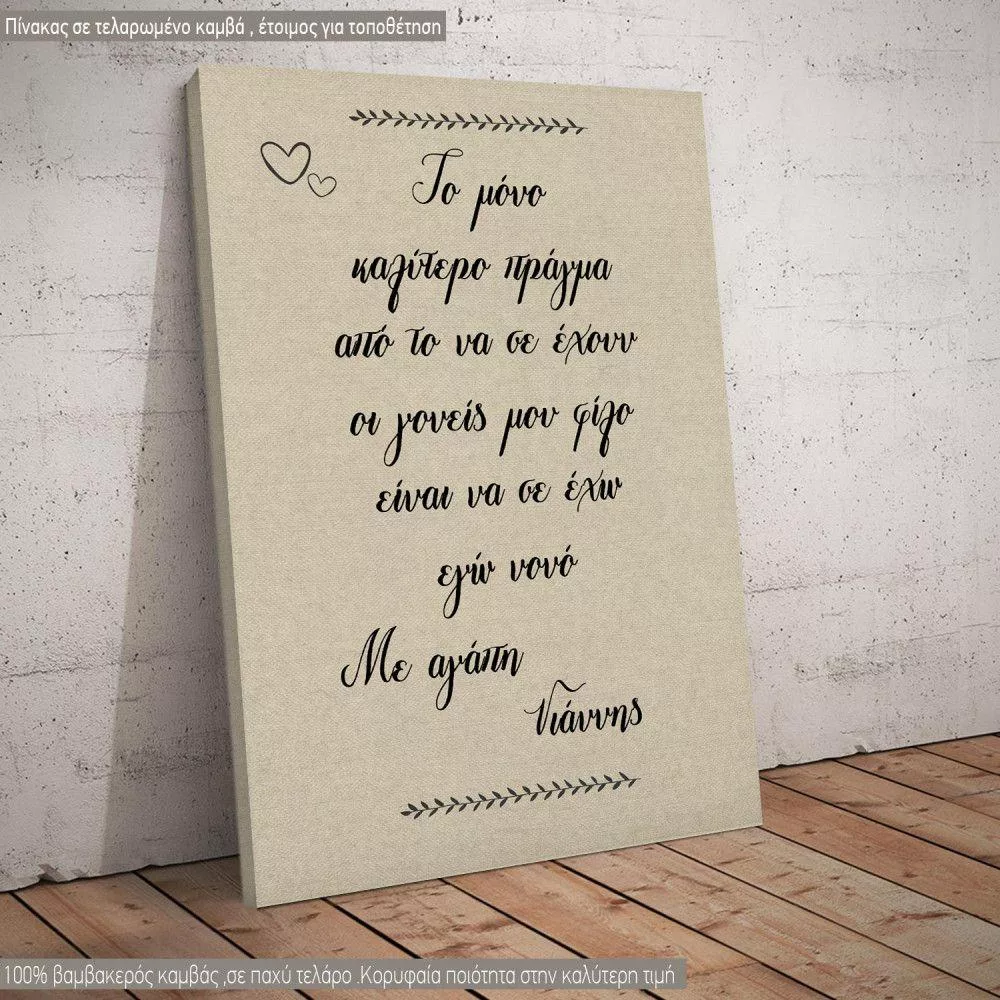 Πίνακας σε τελαρωμένο καμβά , έτοιμος για τοποθέτηση
Το μόνο
καλύτερο πράγμα
από το να σε έχουν
οι γονείς μου φίλο
είναι να σε έχω
εγώ νονό
Με αγάπη
Γιάννης
100% βαμβακερός καμβάς ,σε παχύ τελάρο .Κορυφαία ποιότητα στην καλύτερη τιμή